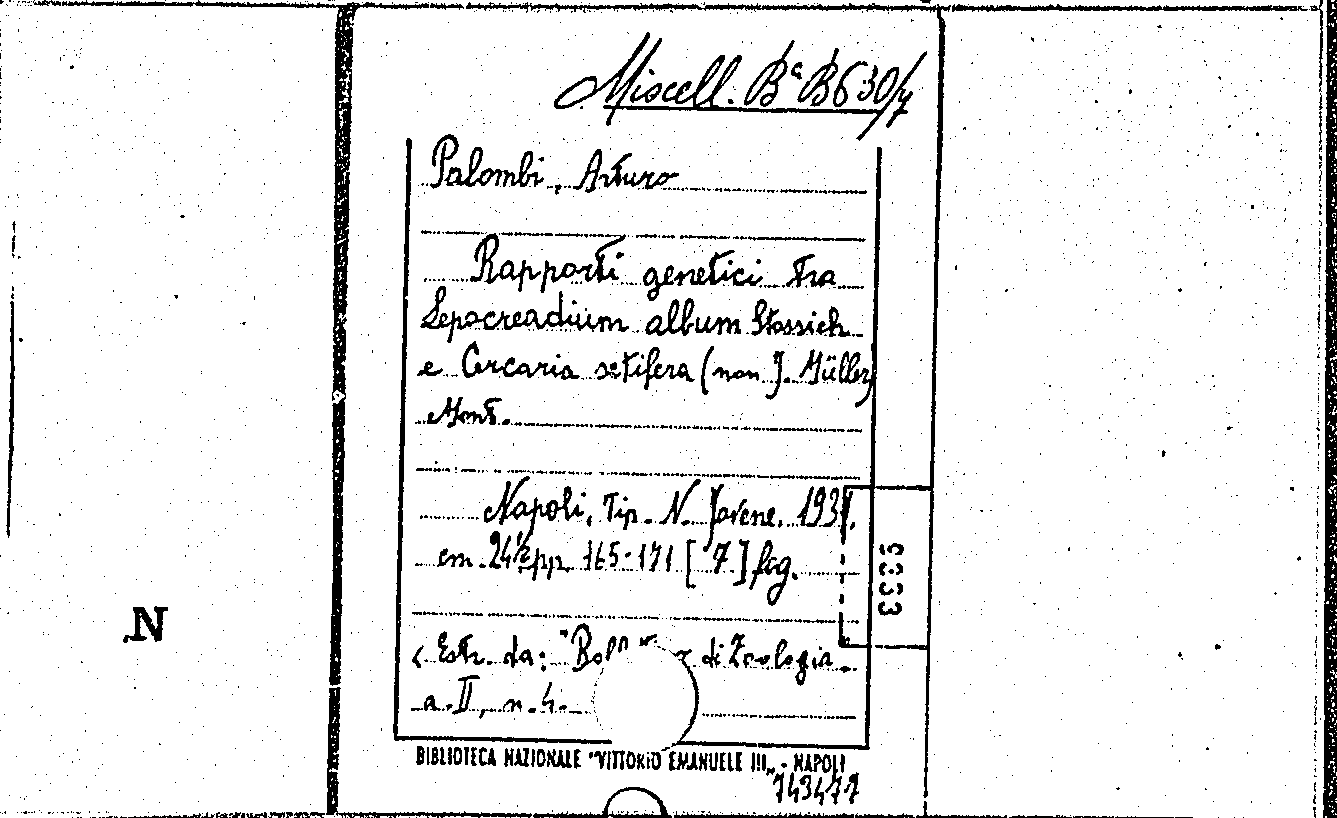 Miscell. Bª B630/7
Palombi, Arturo
Rapporti genetici tra
Lepocreadium album Stossich
e Cercaria setifera (non J. Müller)
Mont.
Napoli, Tip. N. Jovene, 1931.
cm. 24½ pp. 165-171 [7] fig.
9333
< Estr. da: "Boll di Zoologia
a. II, n. 4.
N
BIBLIOTECA NAZIONALE "VITTORIO EMANUELE III" - NAPOLI
743477